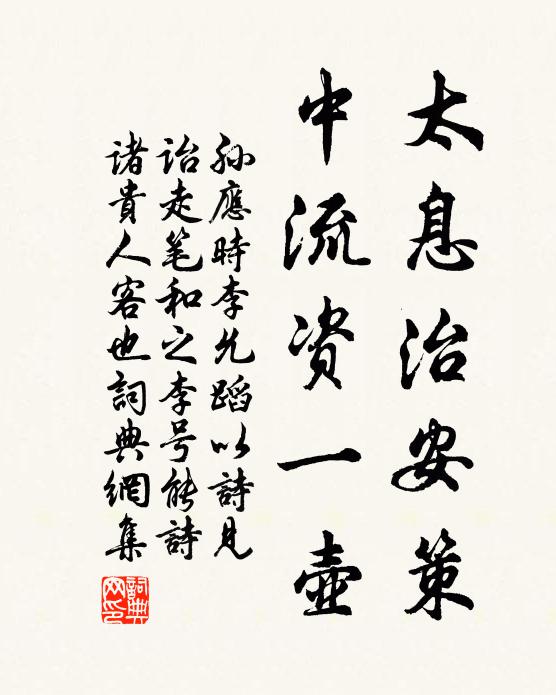 太息治安策
中流资一壶
孙應時李允蹈以詩見
詒走笔和之李号能詩
诸貴人客也詞典網集
詞典
网印